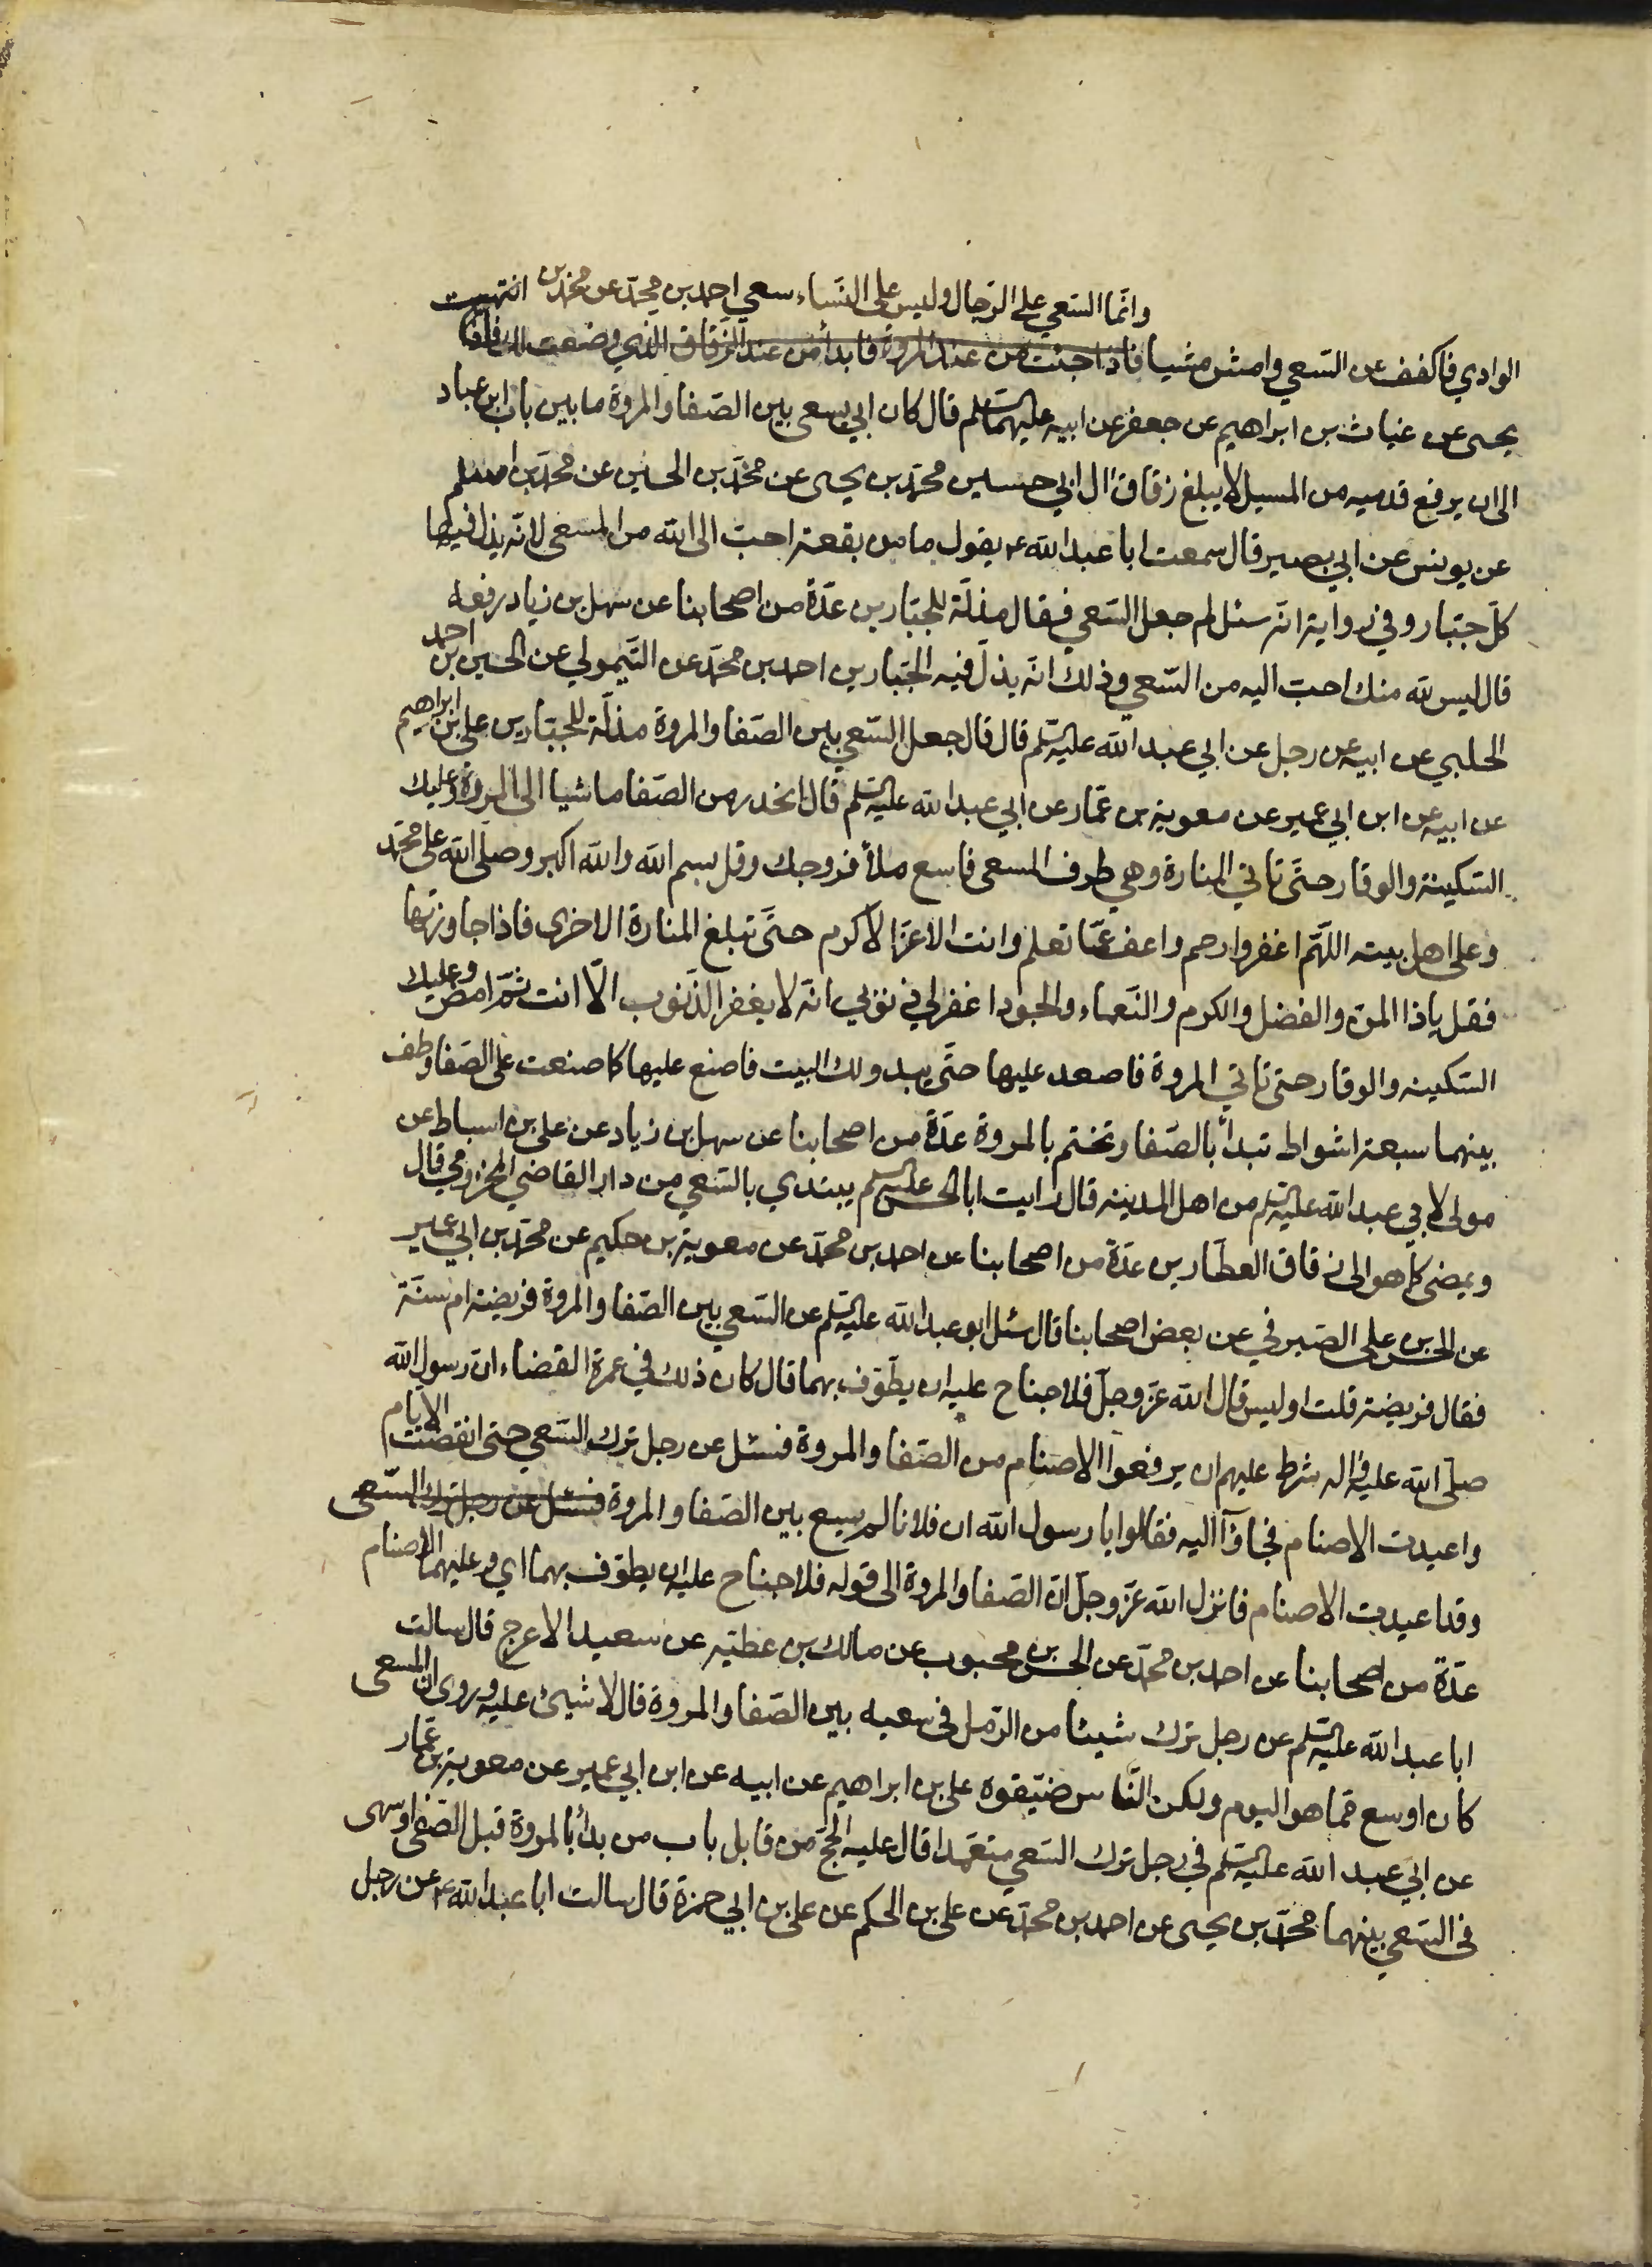 وانما السعي على الرجال وليس على النساء سعي احمد بن محمد عن محمد بن
الوادي فاكفف عن السعي وامش مشيا فاذا جئت من عند المروة فابدأ من عند الزقاق الذي وصفت لك فاذا انتهيت
يحيى عن غياث بن ابراهيم عن جعفر عن ابيه عليهما السلم قال كان ابي يسعى بين الصفا والمروة ما بين باب ابن عباد
الى ان يرفع قدميه من المسيل لا يبلغ زقاق ال ابي حسين محمد بن يحيى عن محمد بن الحسين عن محمد بن اسلم
عن يونس عن ابي بصير قال سمعت ابا عبد الله ع يقول ما من بقعة احب الى الله من المسعى لانه يذل فيها
كل جبار وفي رواية انه سئل لم جعل السعي فقال مذلة للجبارين عدة من اصحابنا عن سهل بن زياد رفعه
قال ليس لله منسك احب اليه من السعي وذلك انه يذل فيه الجبارين احمد بن محمد عن التيمولي عن الحسين بن احمد
الحلبي عن ابيه عن رجل عن ابي عبد الله عليه السلم قال قال جعل السعي بين الصفا والمروة مذلة للجبارين علي بن ابراهيم
عن ابيه عن ابن ابي عمير عن معوية بن عمار عن ابي عبد الله عليه السلم قال انحدر من الصفا ماشيا الى المروة وعليك
السكينة والوقار حتى تاتي المنارة وهي طرف المسعى فاسع ملأ فروجك وقل بسم الله والله اكبر وصلى الله على محمد
وعلى اهل بيته اللهم اغفر وارحم واعف عما تعلم وانت الاعز الاكرم حتى تبلغ المنارة الاخرى فاذا جاوزتها
فقل يا ذا المن والفضل والكرم والنعماء والجود اغفر لي ذنوبي انه لا يغفر الذنوب الا انت ثم امض وعليك
السكينه والوقار حتى تاتي المروة فاصعد عليها حتى يبدو لك البيت فاصنع عليها كما صنعت على الصفا وطف
بينهما سبعة اشواط تبدأ بالصفا وتختم بالمروة عدة من اصحابنا عن سهل بن زياد عن علي بن اسباط عن
مولى لابي عبد الله عليه السلم من اهل المدينه قال رايت ابا الحسن عليه السلم يبتدي بالسعي من دار القاضي المخزومي قال
ويمضي كما هو الى زقاق العطارين عدة من اصحابنا عن احمد بن محمد عن معوية بن حكيم عن محمد بن ابي عمير
عن الحسن بن علي الصيرفي عن بعض اصحابنا قال سئل ابو عبد الله عليه السلم عن السعي بين الصفا والمروة فريضة ام سنة
فقال فريضة قلت اوليس قال الله عز وجل فلا جناح عليه ان يطوف بهما قال كان ذلك في عمرة القضاء ان رسول الله
صلى الله عليه واله شرط عليهم ان يرفعوا الاصنام من الصفا والمروة فسئل عن رجل ترك السعي حتى انقضت الايام
واعيدت الاصنام فجاؤا اليه فقالوا يا رسول الله ان فلانا لم يسع بين الصفا والمروة فسئل عن رجل ترك السعى
وقد اعيدت الاصنام فانزل الله عز وجل ان الصفا والمروة الى قوله فلا جناح عليه ان يطوف بهما اي وعليهما الاصنام
عدة من اصحابنا عن احمد بن محمد عن الحسن بن محبوب عن مالك بن عطيه عن سعيد الاعرج قال سالت
ابا عبد الله عليه السلم عن رجل ترك شيئا من الرمل في سعيه بين الصفا والمروة قال لا شيئ عليه وروى ان المسعى
كان اوسع مما هو اليوم ولكن الناس ضيقوه علي بن ابراهيم عن ابيه عن ابن ابي عمير عن معوية بن عمار
عن ابي عبد الله عليه السلم في رجل ترك السعي متعمدا قال عليه الحج من قابل باب من بدأ بالمروة قبل الصفا او سهى
في السعي بينهما محمد بن يحيى عن احمد بن محمد عن علي بن الحكم عن علي بن ابي حمزة قال سالت ابا عبد الله ع عن رجل